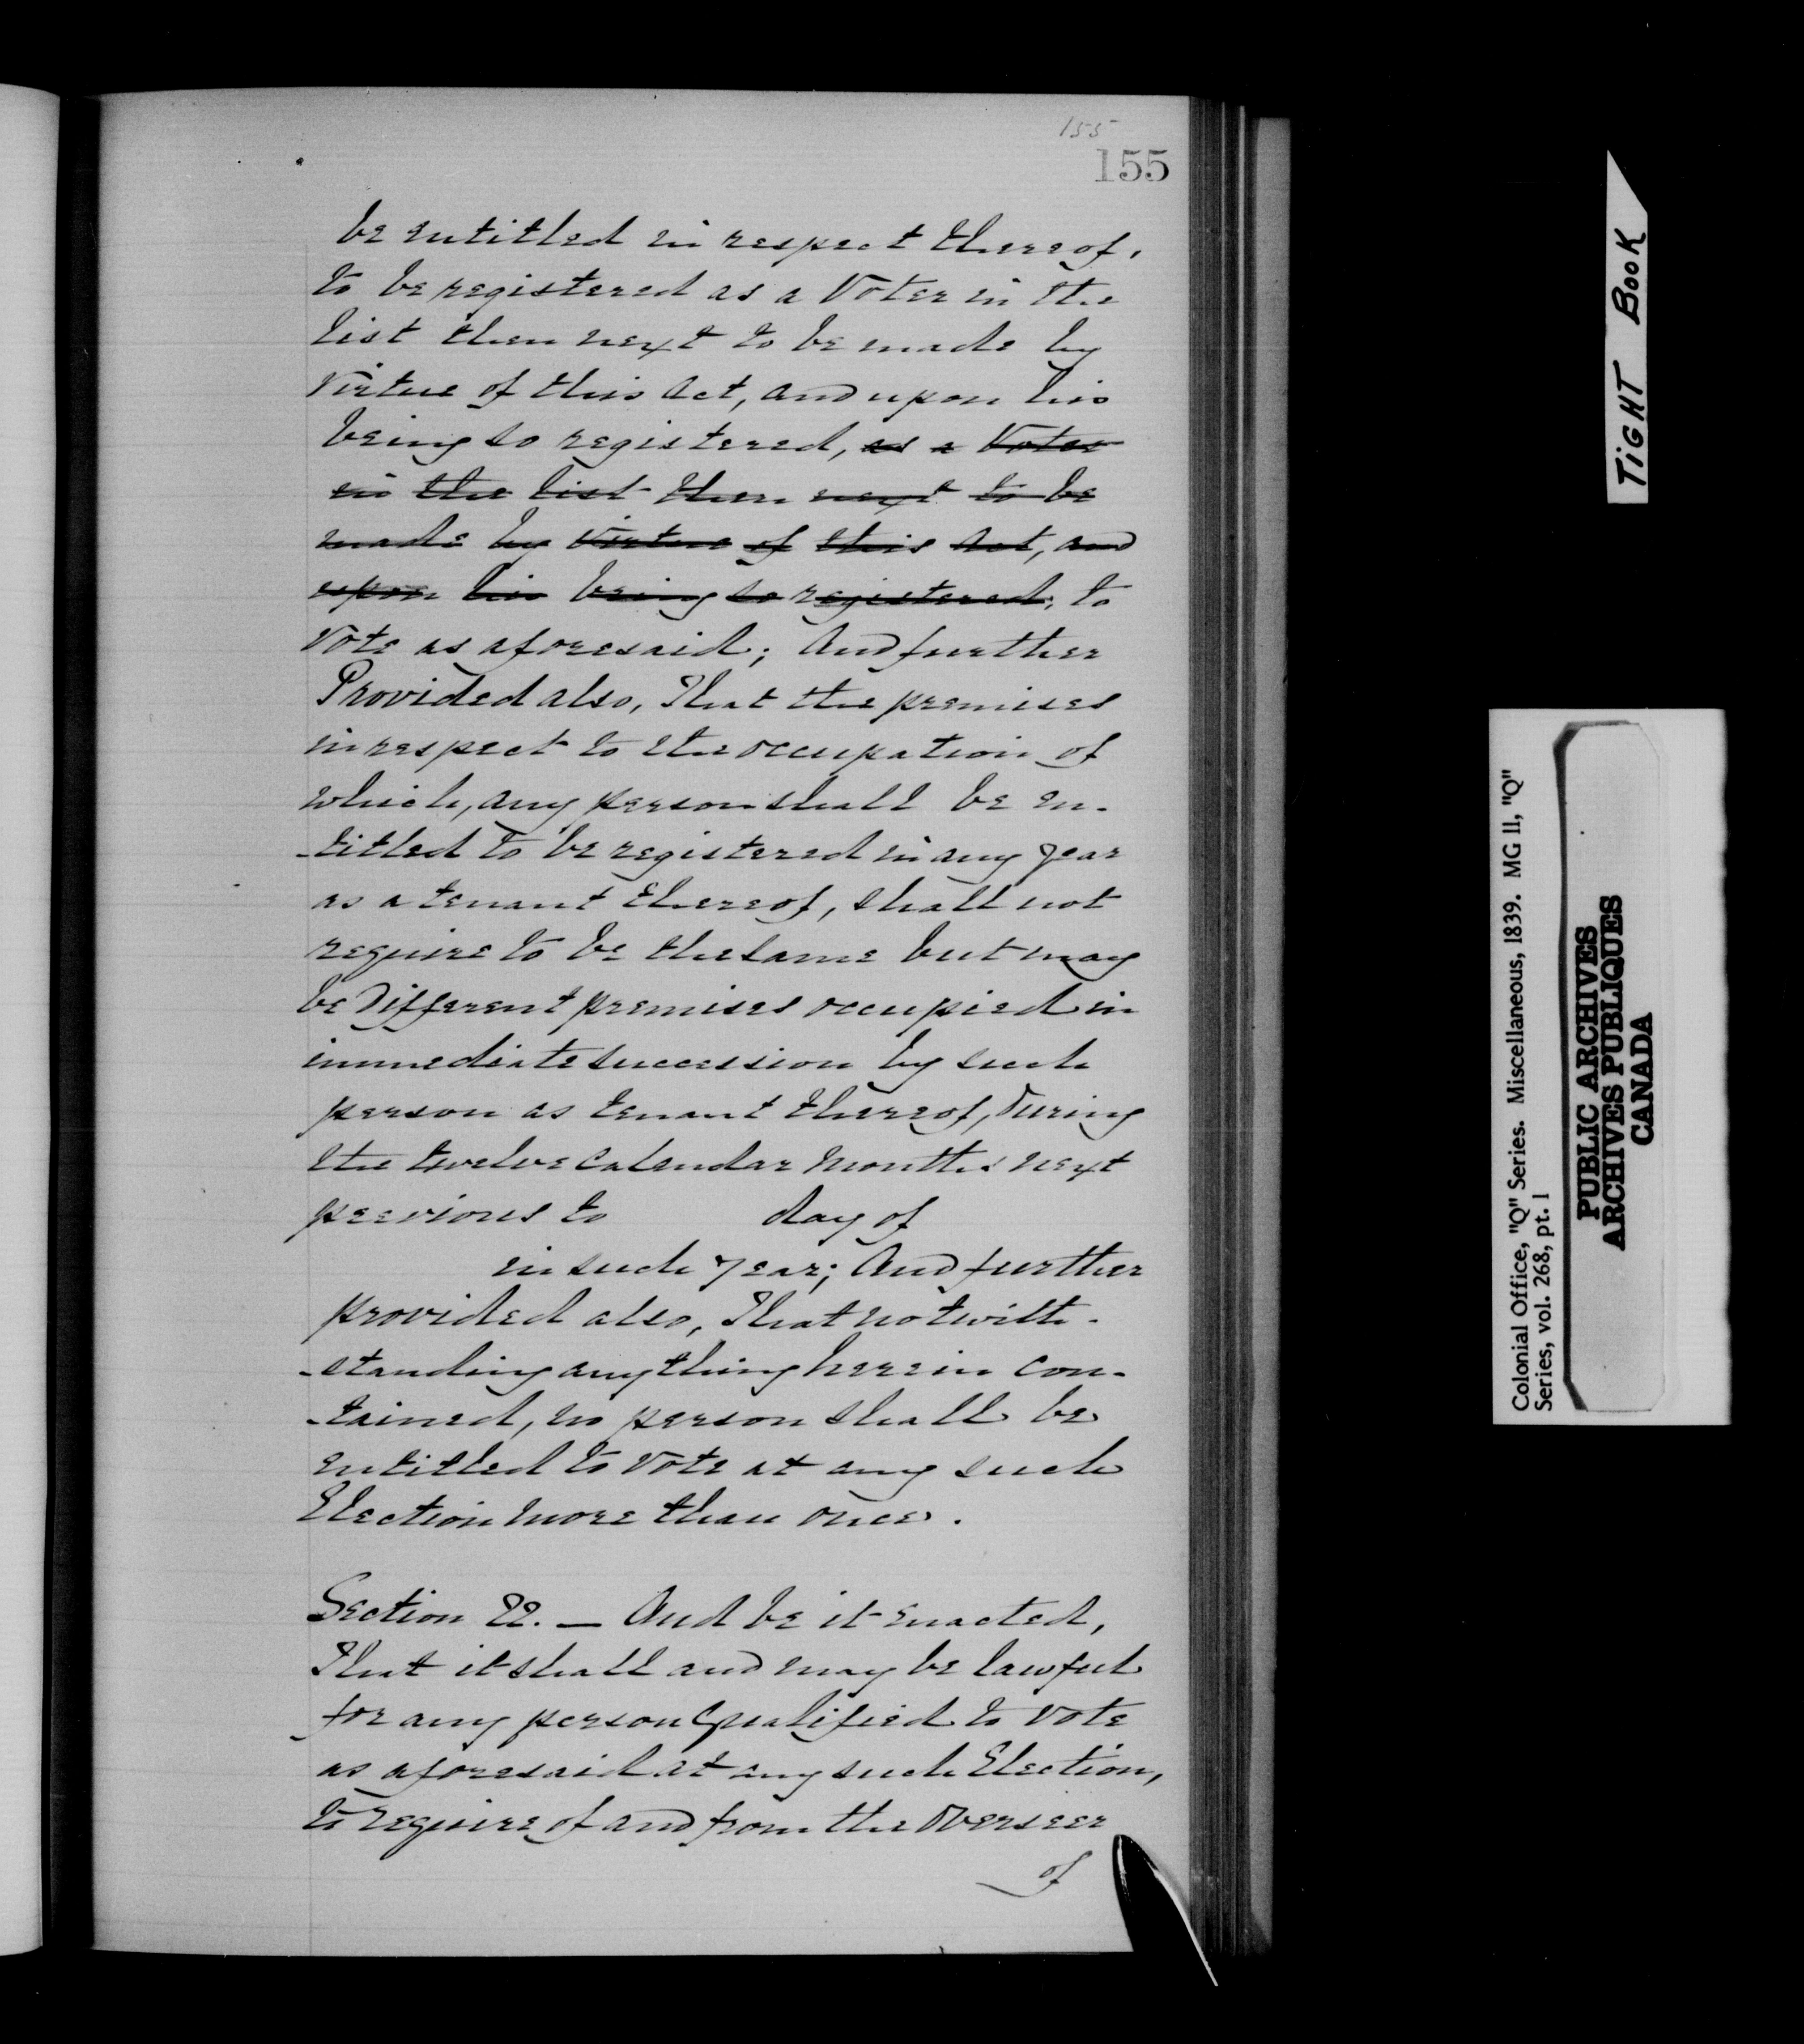 155
155
be entitled in respect thereof,
to be registered as a Voter in the
list then next to be made by
Virtue of this Act, and upon his
being so registered, as a Voter
in the list then next to be
made by Virtue of this Act, and
upon his being so registered, to
Vote as aforesaid; And further
Provided also, That the premises
in respect to the occupation of
which, any person shall be en-
-titled to be registered in any year
as a tenant thereof, shall not
require to be the same but may
be Different premises occupied in
immediate succession by such
person as tenant thereof, During
the twelve Calendar Months next
previous to day of
in such year; And further
provided also, That notwith-
-standing anything herein con-
-tained, no person shall be
entitled to Vote at any such
Election more than once.
Section 22. — And be it enacted,
That it shall and may be lawful
for any person Qualified to Vote
as aforesaid at any such Election,
to require of and from the Overseer
of
TIGHT BOOK
Colonial Office, "Q" Series. Miscellaneous, 1839. MG 11, "Q"
Series, vol. 268, pt. 1
PUBLIC ARCHIVES
ARCHIVES PUBLIQUES
CANADA